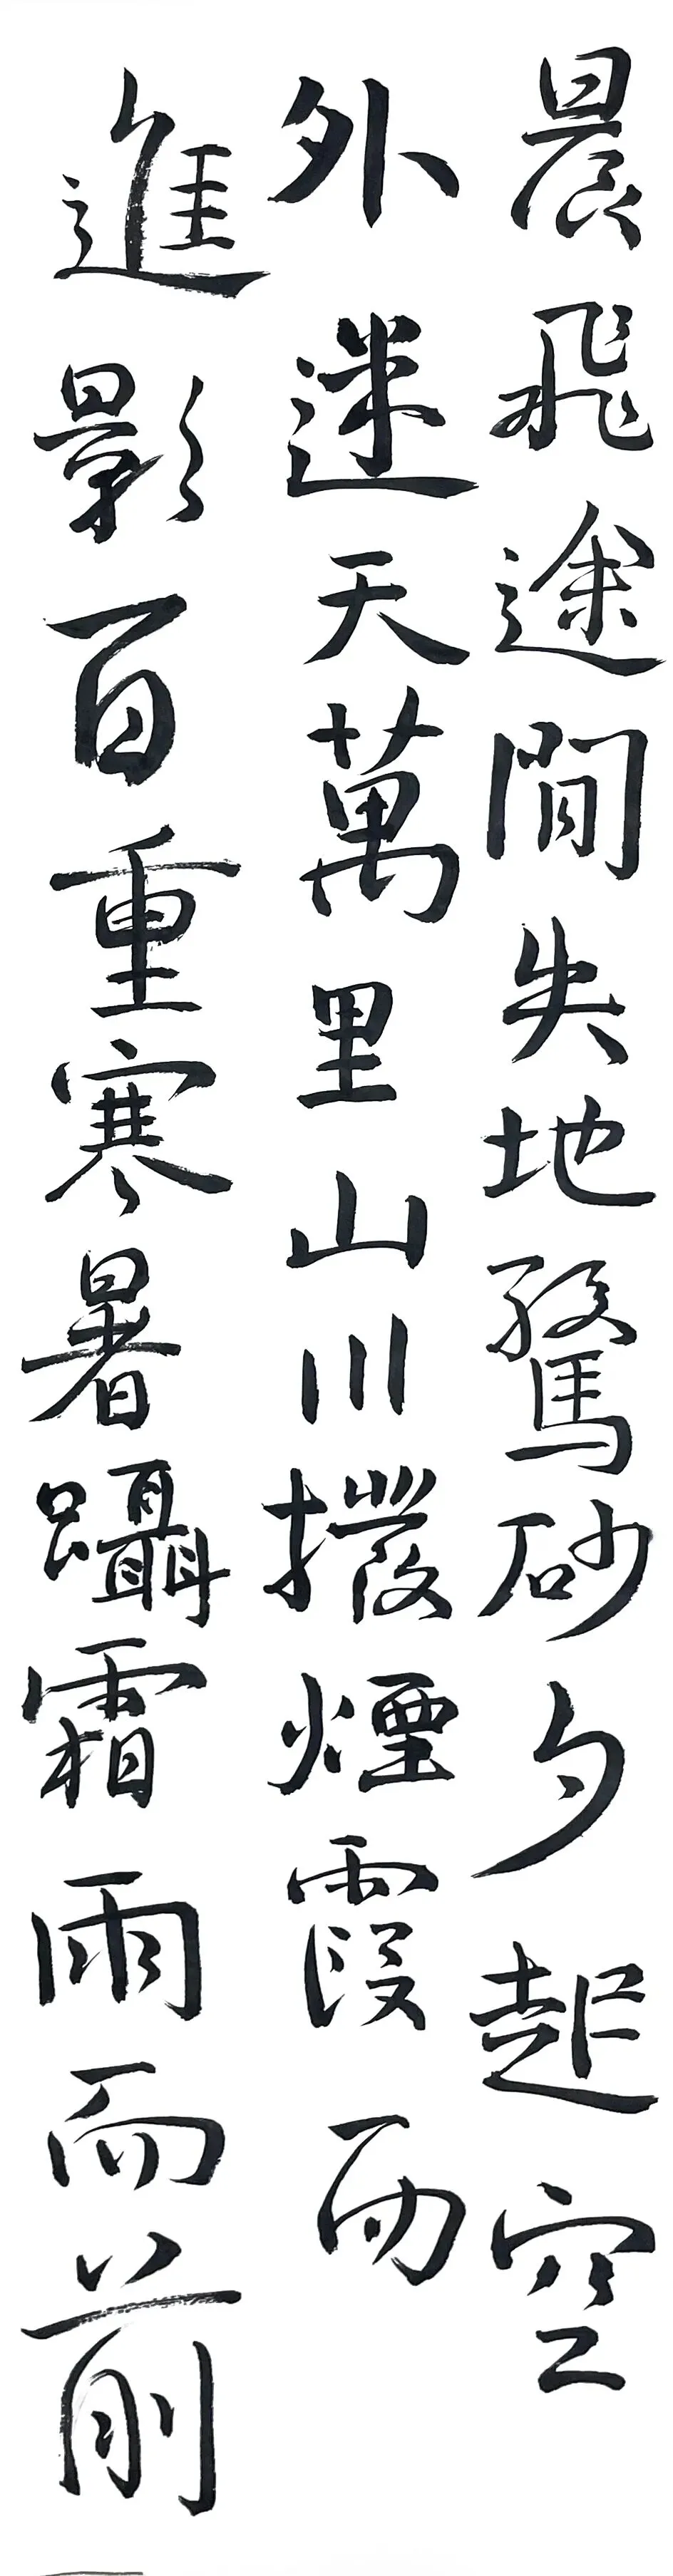 晨飛途間失地驚砂夕起空
外迷天萬里山川撥煙霞而
進影百重寒暑躡霜雨而前